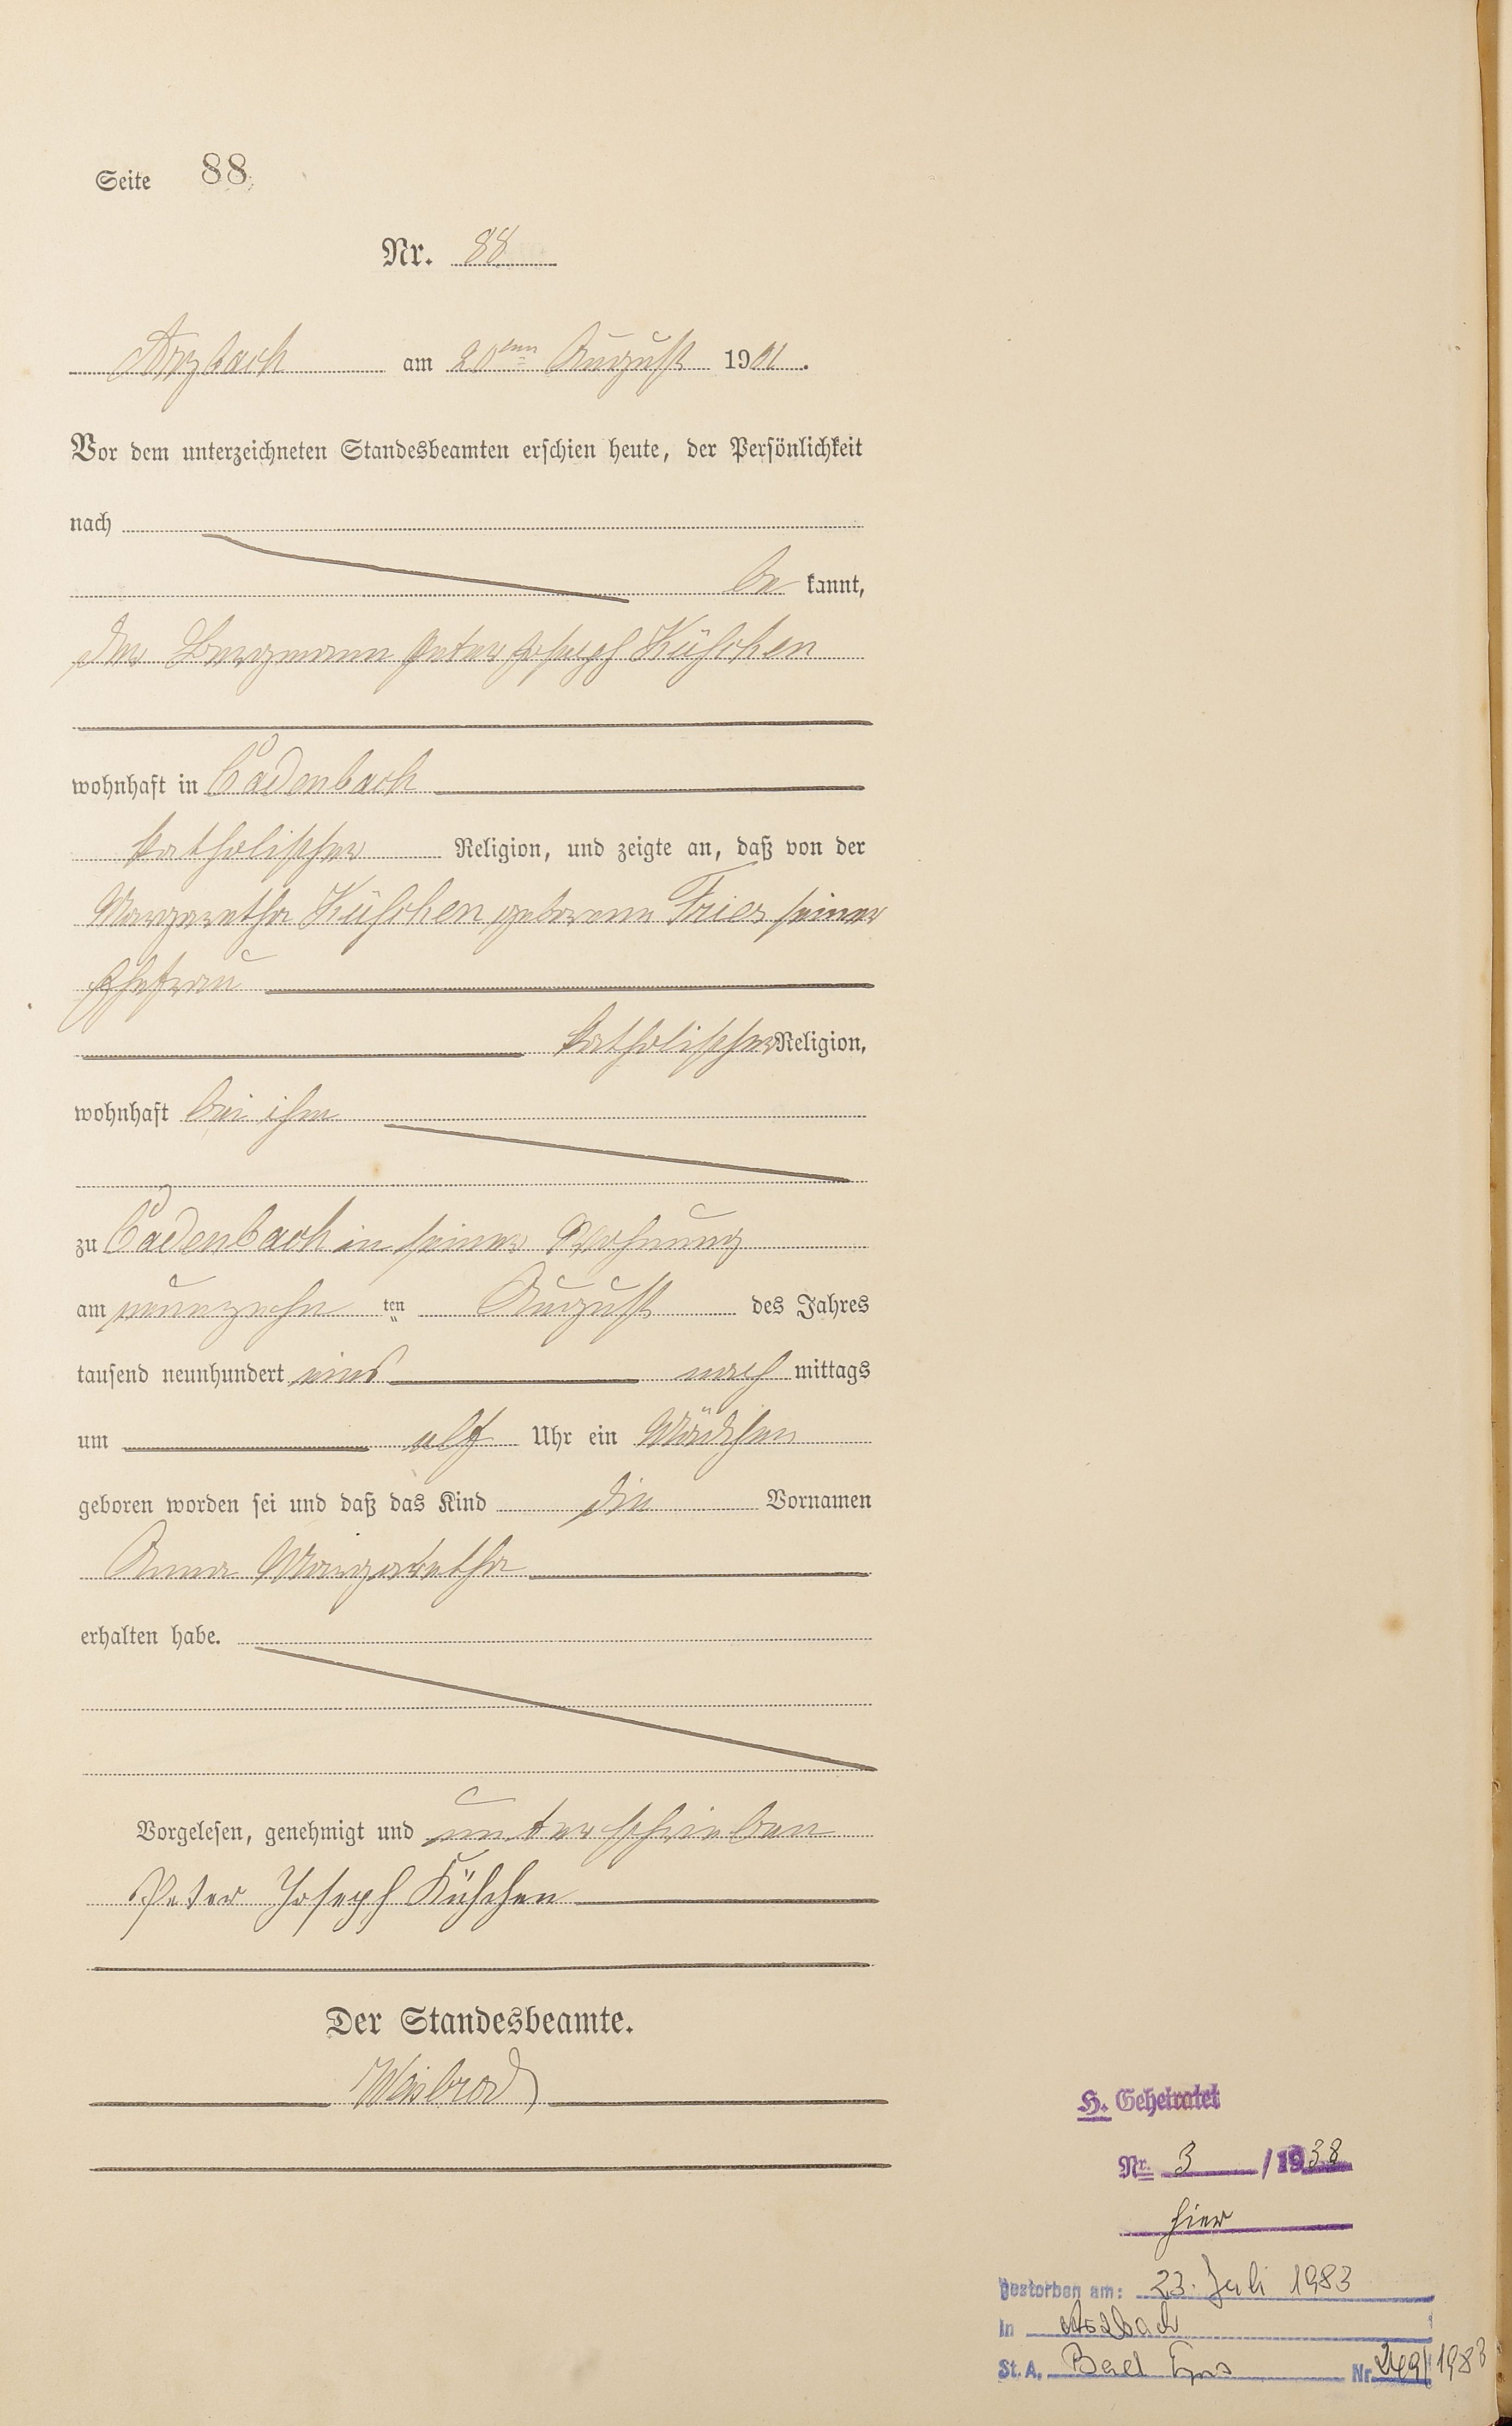 Seite 88
Nr. 88
Arzbach am 20ten August 1901.
Vor dem unterzeichneten Standesbeamten erschien heute, der Persönlichkeit
nach
be kannt,
der Bergmann Peter Joseph Küschen
wohnhaft in Cadenbach
katholischer Religion, und zeigte an, daß von der
Margaretha Küschen geborene Fries seiner
Ehefrau
katholischer Religion,
wohnhaft bei ihm
zu Cadenbach in seiner Wohnung
am neunzehn ten August des Jahres
tausend neunhundert eins nach mittags
um elf Uhr ein Mädchen
geboren worden sei und daß das Kind die Vornamen
Anna Margaretha
erhalten habe.
Vorgelesen, genehmigt und unterschrieben
Peter Joseph Küschen
Der Standesbeamte.
Weisbrod
H. Geheiratet
Nr. 3 / 1938
hier
gestorben am: 23. Juli 1983
in Arzbach
St. A. Bad Ems Nr. 249/1983